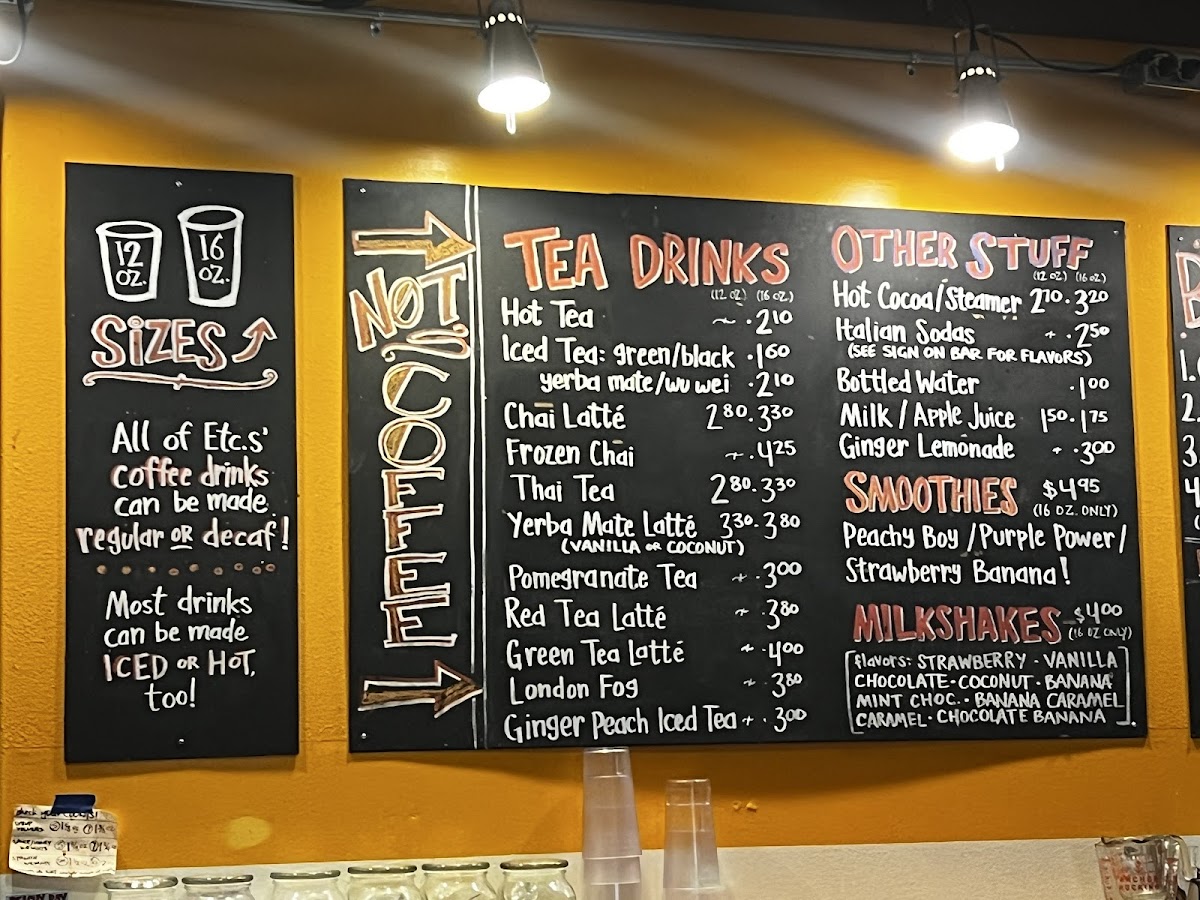 12 OZ.
16 OZ.
SIZES
All of Etc.s'
coffee drinks
can be made
regular OR decaf!
Most drinks
can be made
ICED OR HOT,
too!
NOT COFFEE
TEA DRINKS
(12 OZ) (16 OZ)
Hot Tea ~ . 2.10
Iced Tea: green/black . 1.60
yerba mate/wu wei . 2.10
Chai Latté 2.80 . 3.30
Frozen Chai ~ . 4.25
Thai Tea 2.80 . 3.30
Yerba Mate Latté 3.30 . 3.80
(VANILLA OR COCONUT)
Pomegranate Tea ~ . 3.00
Red Tea Latté ~ . 3.80
Green Tea Latté ~ . 4.00
London Fog ~ . 3.80
Ginger Peach Iced Tea ~ . 3.00
OTHER STUFF
(12 OZ) (16 OZ)
Hot Cocoa/Steamer 2.10 . 3.20
Italian Sodas ~ . 2.50
(SEE SIGN ON BAR FOR FLAVORS)
Bottled Water . 1.00
Milk / Apple Juice 1.50 . 1.75
Ginger Lemonade ~ . 3.00
SMOOTHIES $4.95
(16 OZ. ONLY)
Peachy Boy / Purple Power /
Strawberry Banana!
MILKSHAKES $4.00
(16 OZ ONLY)
[flavors: STRAWBERRY · VANILLA
CHOCOLATE · COCONUT · BANANA
MINT CHOC. · BANANA CARAMEL
CARAMEL · CHOCOLATE BANANA].
1.
2.
3.
4